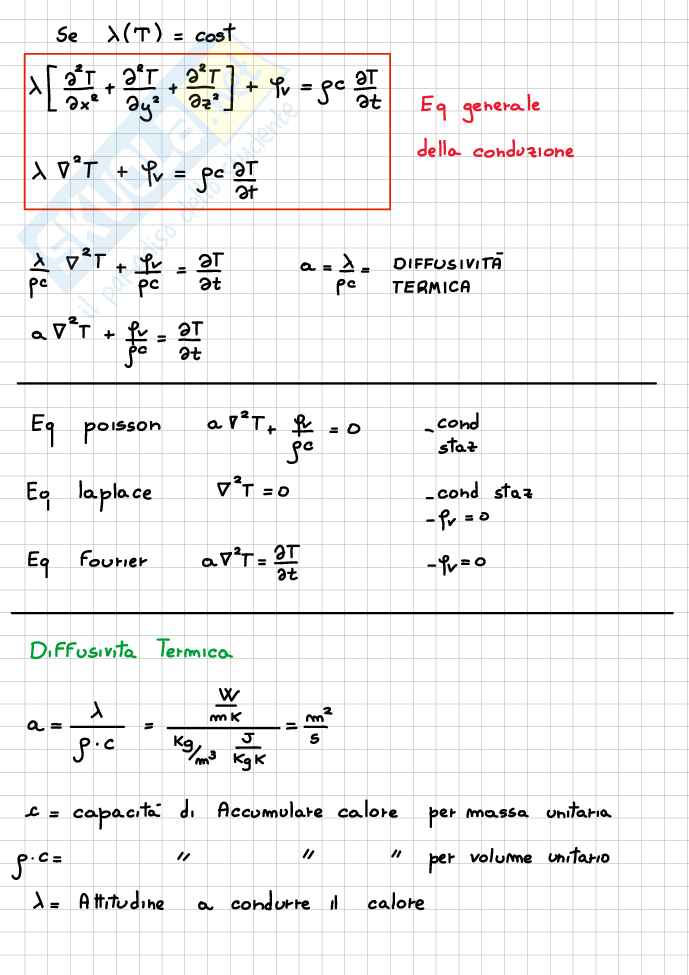 Se λ(T) = cost
λ[∂²T/∂x² + ∂²T/∂y² + ∂²T/∂z²] + φv = ρc ∂T/∂t
Eq generale
della conduzione
λ ∇²T + φv = ρc ∂T/∂t
λ/ρc ∇²T + φv/ρc = ∂T/∂t a = λ/ρc = DIFFUSIVITÀ
TERMICA
a ∇²T + φv/ρc = ∂T/∂t
Eq poisson a ∇²T + φv/ρc = 0 - cond
staz
Eq laplace ∇²T = 0 - cond staz
- φv = 0
Eq Fourier a∇²T = ∂T/∂t - φv = 0
Diffusivita Termica
a = λ/ρ·c = W/mK / Kg/m³ J/KgK = m²/s
c = capacità di Accumulare calore per massa unitaria
ρ·c = " " " per volume unitario
λ = Attitudine a condurre il calore
SKUOLA.net
il paradiso dello studente